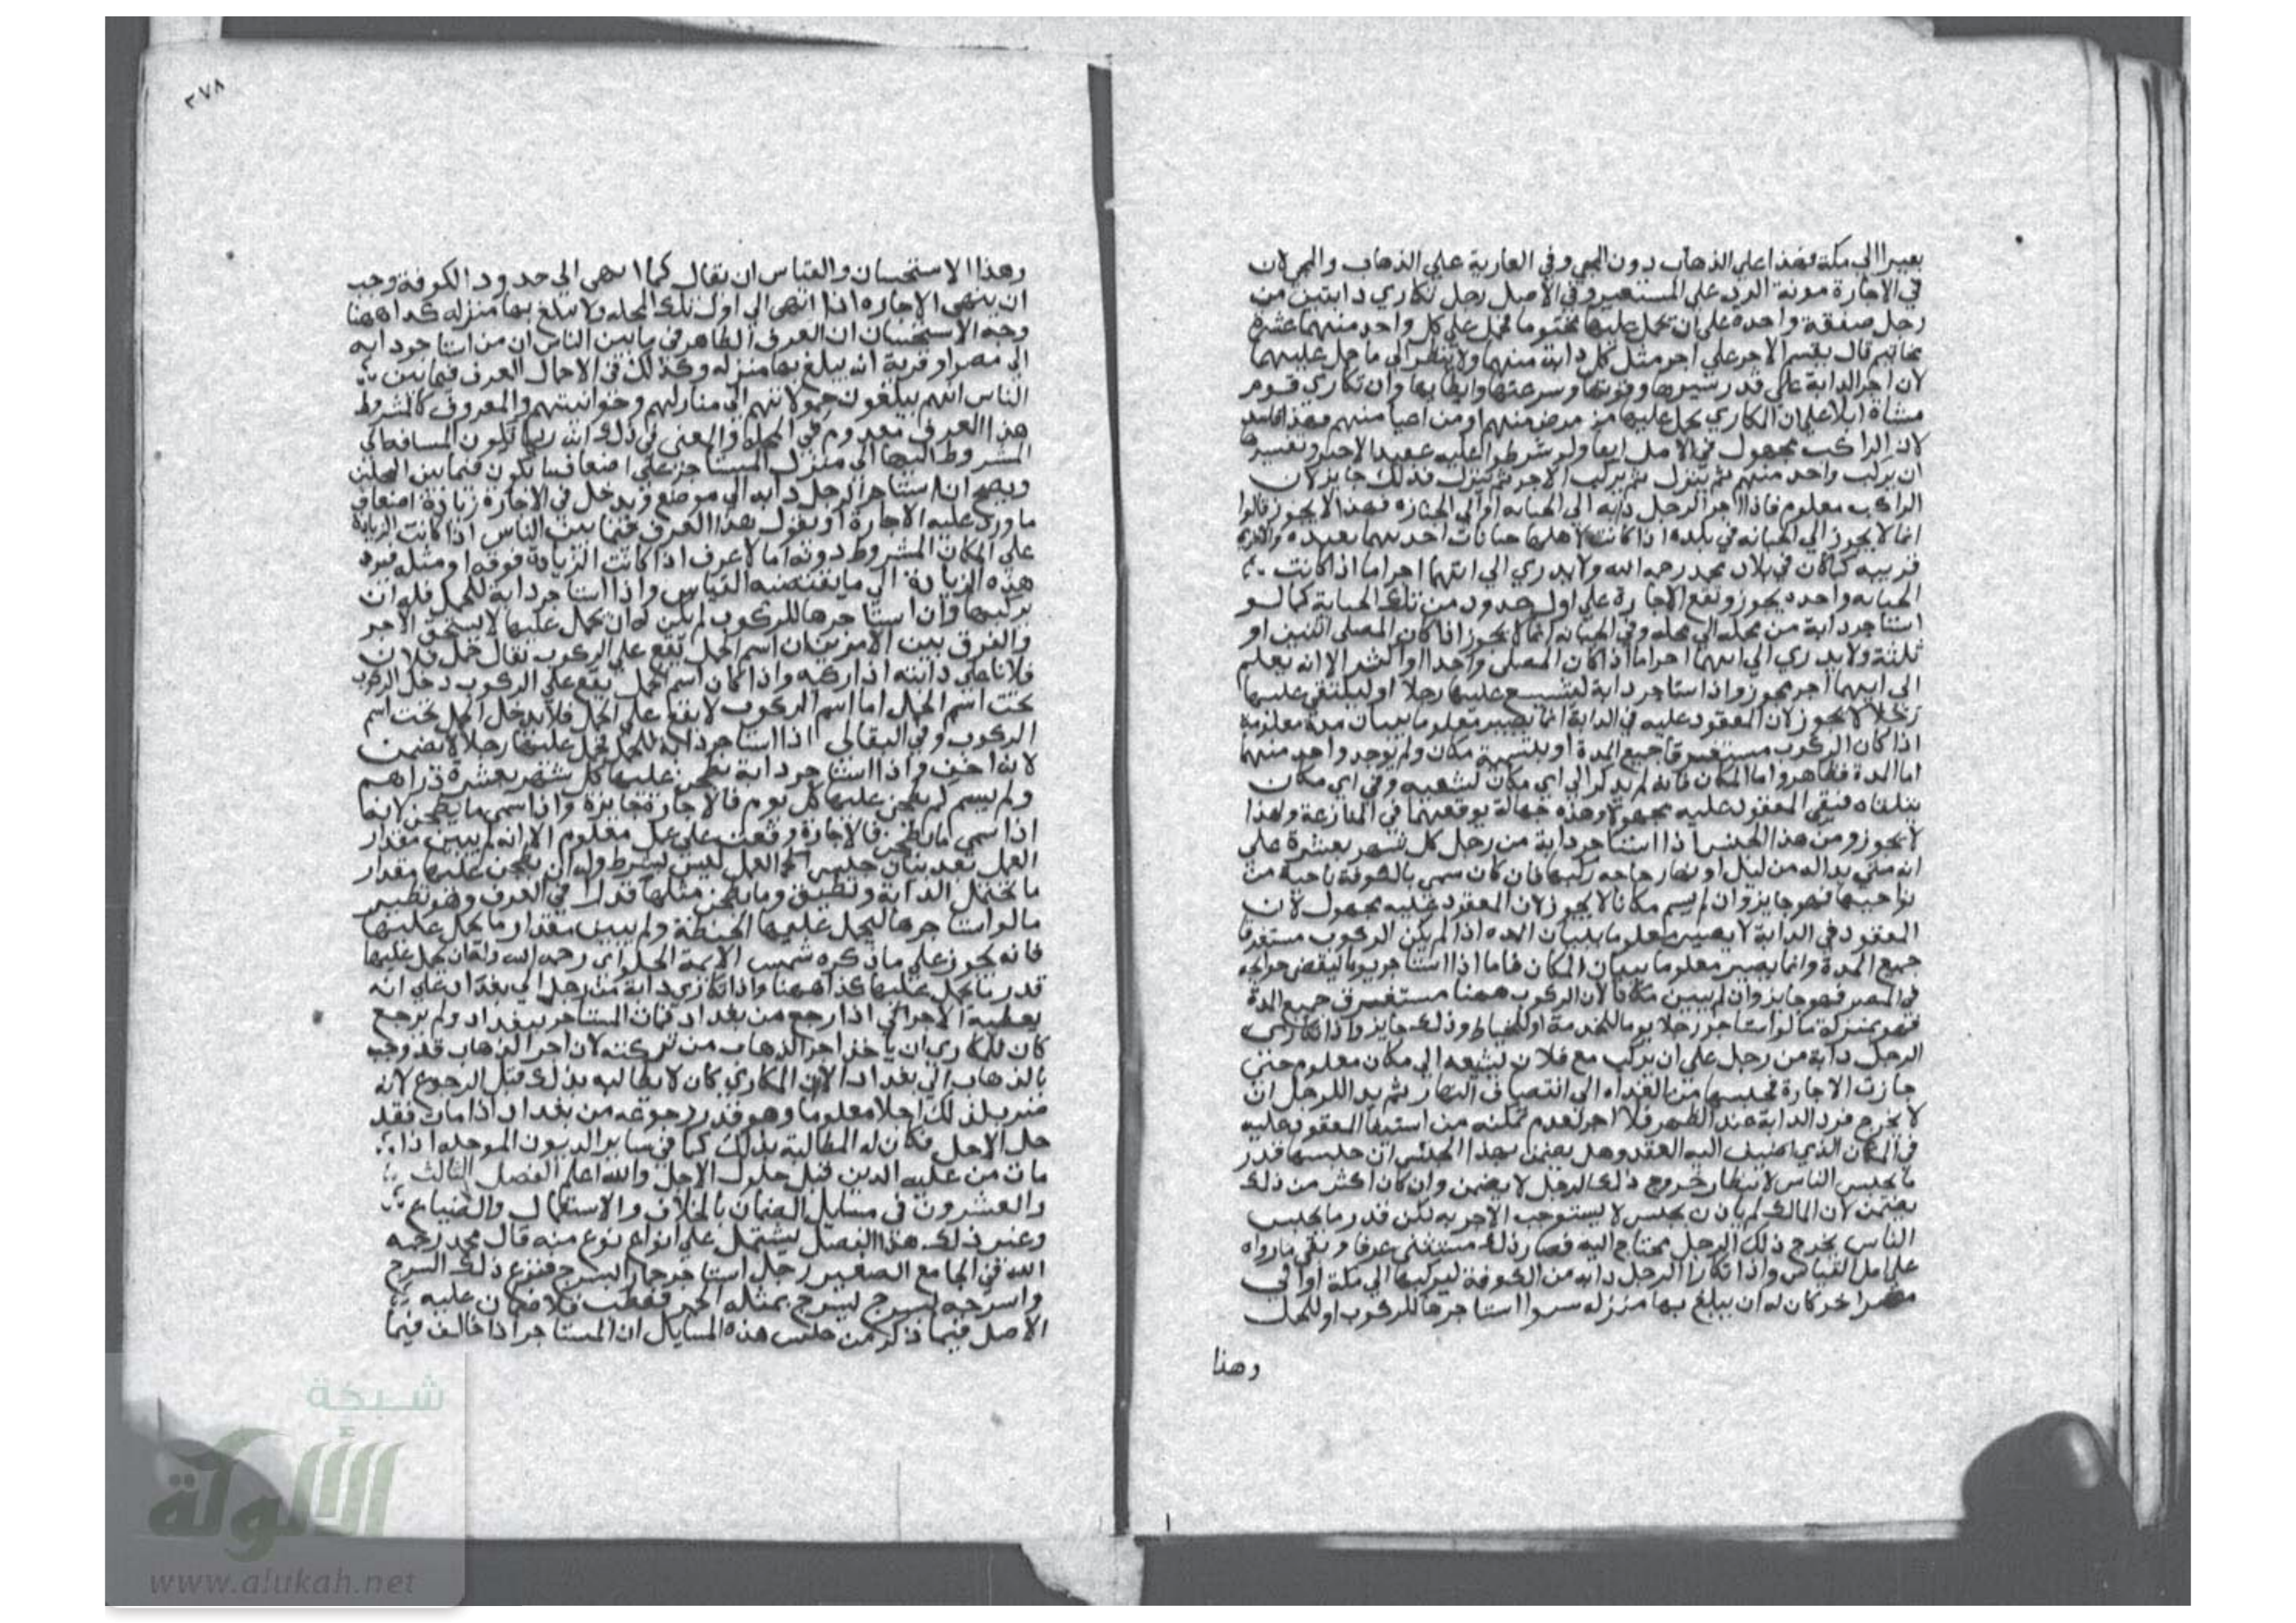 بعيرا الي مكة فهذا علي الذهاب دون المجي وفي العارية علي الذهاب والمجي لان
في الاجارة مونة الرد علي المستعير وفي الاصل رجل تكاري دابتين من
رجل صفقة واحدة علي ان يحمل عليهما مختوما فحمل علي كل واحد منهما عشرة
مخاتيم قال يقسم الاجر علي اجر مثل كل دابة منهما ولا ينظر الي ما حمل عليهما
لان اجر الدابة علي قدر سيرها وقوتها وسرعتها وابطايها وان تكاري قوم
مشاة ابلا علي ان المكاري يحمل عليها من مرض منهم او من اعيا منهم فهذا فاسد
لان الراكب مجهول في الاصل ولو شرطوا عليه عقبة الاجير وتفسيرها
ان يركب واحد منهم ثم ينزل ثم يركب الاخر ثم ينزل فذلك جايز لان
الراكب معلوم فاذا اجر الرجل دابه الي الجبانه او الي الجنازه فهذا لا يجوز قالوا
انما لا يجوز الي الجبانه في بلده اذا كانت لاهلها جبانات احديهما بعيده والاخري
قريبه كما كان في بلاد محمد رحمه الله ولا يدري الي ايتهما اجر اما اذا كانت
الجبانه واحده يجوز وتقع الاجارة علي اول حدود من تلك الجبانة كما لو
استاجر دابة من محله الي محله وفي الجبانه انما لا يجوز اذا كان المصلي اثنين او
ثلثة ولا يدري الي ايهما اجر اما اذا كان المصلي واحدا او اكثر الا انه يعلم
الي ايهما اجر يجوز واذا استاجر دابة ليشيع عليها رجلا او ليلتقي عليها
رجلا لا يجوز لان المعقود عليه في الدابة انما يصير معلوما ببيان مدة معلومة
اذا كان الركوب مستغرقا جميع المدة او بتسمية مكان ولم يوجد واحد منهما
اما المدة فظاهر واما المكان فانه لم يذكر الي اي مكان يشيعه وفي اي مكان
يتلقاه فبقي المعقود عليه مجهولا وهذه جهالة يوقعهما في المنازعة ولهذا
لا يجوز ومن هذا الجنس اذا استاجر دابة من رجل كل شهر بعشرة علي
انه متي بدا له من ليل او نهار حاجه ركبها فان كان سمي بالكوفة ناحية من
نواحيها فهو جايز وان لم يسم مكانا لا يجوز لان المعقود عليه مجهول لان
المعقود في الدابة لا يصير معلوما ببيان المده اذا لم يكن الركوب مستغرقا
جميع المدة وانما يصير معلوما ببيان المكان فاما اذا استاجر يوما ليقضي حوايجه
في المصر فهو جايز وان لم يبين مكانا لان الركوب ههنا مستغرق جميع المدة
فهو بمنزلة ما لو استاجر رجلا يوما للخدمة او للخياط وذلك جايز واذا تكاري
الرجل دابة من رجل علي ان يركب مع فلان يشيعه الي مكان معلوم حتي
جازت الاجارة فحبسها من الغداه الي انتصاف النهار ثم بدا للرجل ان
لا يخرج فرد الدابة عند الظهر فلا اجر لعدم تمكنه من استيفا المعقود عليه
في المكان الذي اضيف اليه العقد وهل يضمن بهذا الحبس ان حبسها قدر
ما يحبس الناس لانتظار خروج ذلك الرجل لا يضمن وان كان اكثر من ذلك
يضمن لان المالك لم ياذن بحبس لا يستوجب الاجر به لكن قدر ما يحبس
الناس بخرج ذلك الرجل محتاج اليه فصار ذلك مستثني عرفا وبقي ما رواه
علي اصل القياس واذا تكارا الرجل دابه من الكوفة ليركبها الي مكة او الي
مصر اخر كان له ان يبلغ بها منزله سوا استاجرها للركوب او للحمل
وهذا
٣٧٨
وهذا الاستحسان والقياس ان يقال كما انتهي الي حدود الكوفة وجب
ان ينتهي الاجاره اذا انتهي الي اول تلك المحله ولا يبلغ بها منزله كذا ههنا
وجه الاستحسان ان العرف الظاهر في ما بين الناس ان من استاجر دابه
الي مصر او قرية انه يبلغ بها منزله وكذلك في الاحمال العرف فيما بين
الناس انهم يبلغون حمولاتهم الي منازلهم وحوانيتهم والمعروف كالمشروط
هذا العرف معدوم في المحله والمعني في ذلك انه ربما تكون المسافه الي
المشروط اليها الي منزل المستاجر علي اضعاف ما تكون فيما بين المحلتين
ويصح ان استاجر الرجل دابه الي موضع ويدخل في الاجارة زيادة اضعاف
ما ورد عليه الاجارة او نقول هذا العرف فيما بين الناس اذا كانت الزيادة
علي المكان المشروط دونه اما لا عرف اذا كانت الزيادة فوقه او مثله فيرد
هذه الزيادة الي ما يقتضيه القياس واذا استاجر دابة للحمل فله ان
يركبها وان استاجرها للركوب لم يكن له ان يحمل عليها لا يستحق الاجر
والفرق بين الامرين ان اسم الحمل يقع علي الركوب يقال حمل فلان
فلانا علي دابته اذا اركبه واذا كان اسم الحمل يقع علي الركوب دخل الركوب
تحت اسم الحمل اما اسم الركوب لا يقع علي الحمل فلا يدخل الحمل تحت اسم
الركوب وفي البقالي اذا استاجر دابة للحمل فحمل عليها رجلا لا يضمن
لانه اخف واذا استاجر دابة يطحن عليها كل شهر بعشرة دراهم
ولم يسم لم يطحن عليها كل يوم فالاجارة جايزة واذا سمي ما يطحن لانها
اذا سمي ما يطحن فالاجارة وقعت علي عمل معلوم الا انه لم يبين مقدار
العمل بعد بيان جنس العمل ليس بشرط وله ان يطحن عليها مقدار
ما تحتمل الدابة وتطيق وما يطحن مثلها قدرا في العرف وهو نظير
ما لو استاجرها ليحمل عليها الحنطة ولم يبين مقدار ما يحمل عليها
فانه يجوز علي ما ذكره شمس الايمة الحلواني رحمه الله وكان يحمل عليها
قدر ما يحمل عليها كذا ههنا واذا تكاري دابة من رجل الي بغداد علي انه
يعطيه الاجر الي اذا رجع من بغداد فمات المستاجر ببغداد ولم يرجع
كان للمكاري ان ياخذ اجر الذهاب من تركته لان اجر الذهاب قد وجب
بالذهاب الي بغداد الا ان المكاري كان لا يطالبه بذلك قبل الرجوع لانه
ضرب لذلك اجلا معلوما وهو قدر رجوعه من بغداد اذا مات فقد
حل الاجل فكان له المطالبة بذلك كما في ساير الديون الموجله اذا
مات من عليه الدين قبل حلول الاجل والله اعلم الفصل الثالث
والعشرون في مسايل الضمان بالخلاف والاستعمال والضياع
وغير ذلك هذا الفصل يشتمل علي انواع نوع منه قال محمد رحمه
الله في الجامع الصغير رجل استاجر حمارا بسرج فنزع ذلك السرج
واسرجه بسرج يسرج بمثله الحمر فعطب فلا ضمان عليه
الاصل فيما ذكر من جنس هذه المسايل ان المستاجر اذا خالف فيما
شبكة
الألوكة
www.alukah.net